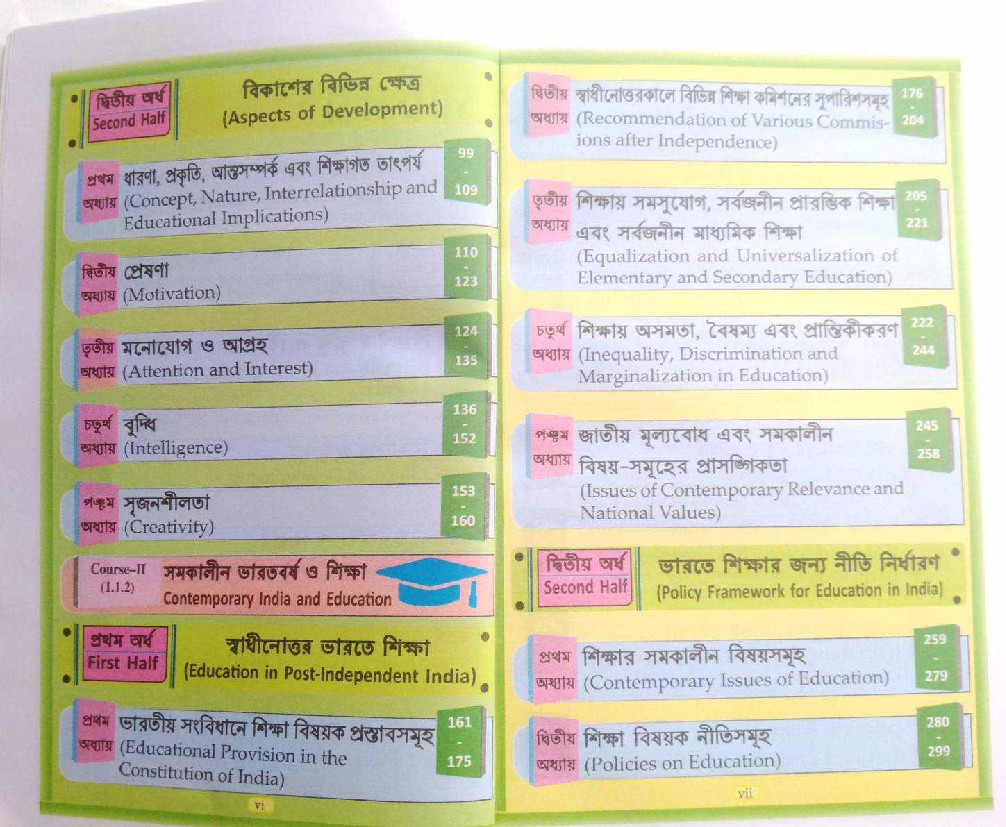 দ্বিতীয় অর্ধ
Second Half
বিকাশের বিভিন্ন ক্ষেত্র
(Aspects of Development)
প্রথম অধ্যায়
ধারণা, প্রকৃতি, আন্তসম্পর্ক এবং শিক্ষাগত তাৎপর্য
(Concept, Nature, Interrelationship and
Educational Implications)
99
-
109
দ্বিতীয় অধ্যায়
প্রেষণা
(Motivation)
110
-
123
তৃতীয় অধ্যায়
মনোযোগ ও আগ্রহ
(Attention and Interest)
124
-
135
চতুর্থ অধ্যায়
বুদ্ধি
(Intelligence)
136
-
152
পঞ্চম অধ্যায়
সৃজনশীলতা
(Creativity)
153
-
160
Course-II
(1.1.2)
সমকালীন ভারতবর্ষ ও শিক্ষা
Contemporary India and Education
প্রথম অর্ধ
First Half
স্বাধীনোত্তর ভারতে শিক্ষা
(Education in Post-Independent India)
প্রথম অধ্যায়
ভারতীয় সংবিধানে শিক্ষা বিষয়ক প্রস্তাবসমূহ
(Educational Provision in the
Constitution of India)
161
-
175
vi
দ্বিতীয় অধ্যায়
স্বাধীনোত্তরকালে বিভিন্ন শিক্ষা কমিশনের সুপারিশসমূহ
(Recommendation of Various Commis-
ions after Independence)
176
-
204
তৃতীয় অধ্যায়
শিক্ষায় সমসুযোগ, সর্বজনীন প্রারম্ভিক শিক্ষা
এবং সর্বজনীন মাধ্যমিক শিক্ষা
(Equalization and Universalization of
Elementary and Secondary Education)
205
-
221
চতুর্থ অধ্যায়
শিক্ষায় অসমতা, বৈষম্য এবং প্রান্তিকীকরণ
(Inequality, Discrimination and
Marginalization in Education)
222
-
244
পঞ্চম অধ্যায়
জাতীয় মূল্যবোধ এবং সমকালীন
বিষয়-সমূহের প্রাসঙ্গিকতা
(Issues of Contemporary Relevance and
National Values)
245
-
258
দ্বিতীয় অর্ধ
Second Half
ভারতে শিক্ষার জন্য নীতি নির্ধারণ
(Policy Framework for Education in India)
প্রথম অধ্যায়
শিক্ষার সমকালীন বিষয়সমূহ
(Contemporary Issues of Education)
259
-
279
দ্বিতীয় অধ্যায়
শিক্ষা বিষয়ক নীতিসমূহ
(Policies on Education)
280
-
299
vii